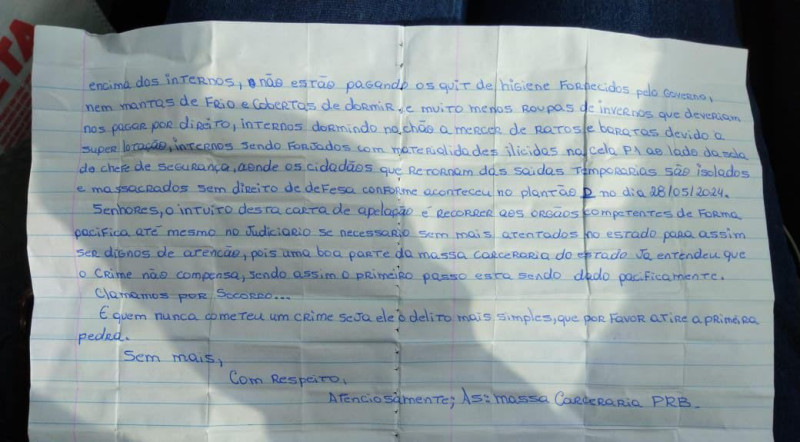 encima dos internos, não estão pagando os quit de higiene fornecidos pelo governo,
nem mantas de frio e cobertas de dormir, e muito menos roupas de invernos que deveriam
nos pagar por direito, internos dormindo no chão a mercer de ratos e baratas devido a
super lotação, internos sendo forjados com materialidades ilicidas na cela P1 ao lado da sala
do chefe de segurança, aonde os cidadãos que retornam das saidas temporarias são isolados
e massacrados sem direito de defesa conforme aconteceu no plantão D no dia 28/05/2024.
Senhores, o intuito desta carta de apelação é recorrer aos orgãos competentes de forma
pacifica até mesmo no judiciario se necessario sem mais atentados no estado para assim
ser dignos de atencão, pois uma boa parte da massa carceraria do estado Ja entendeu que
o crime não compensa, sendo assim o primeiro passo esta sendo dado pacificamente.
Clamamos por Socorro...
E quem nunca cometeu um crime seja ele o delito mais simples, que por favor atire a primeira
pedra.
Sem mais,
Com Respeito,
Atenciosamente; As: massa Carceraria PRB.